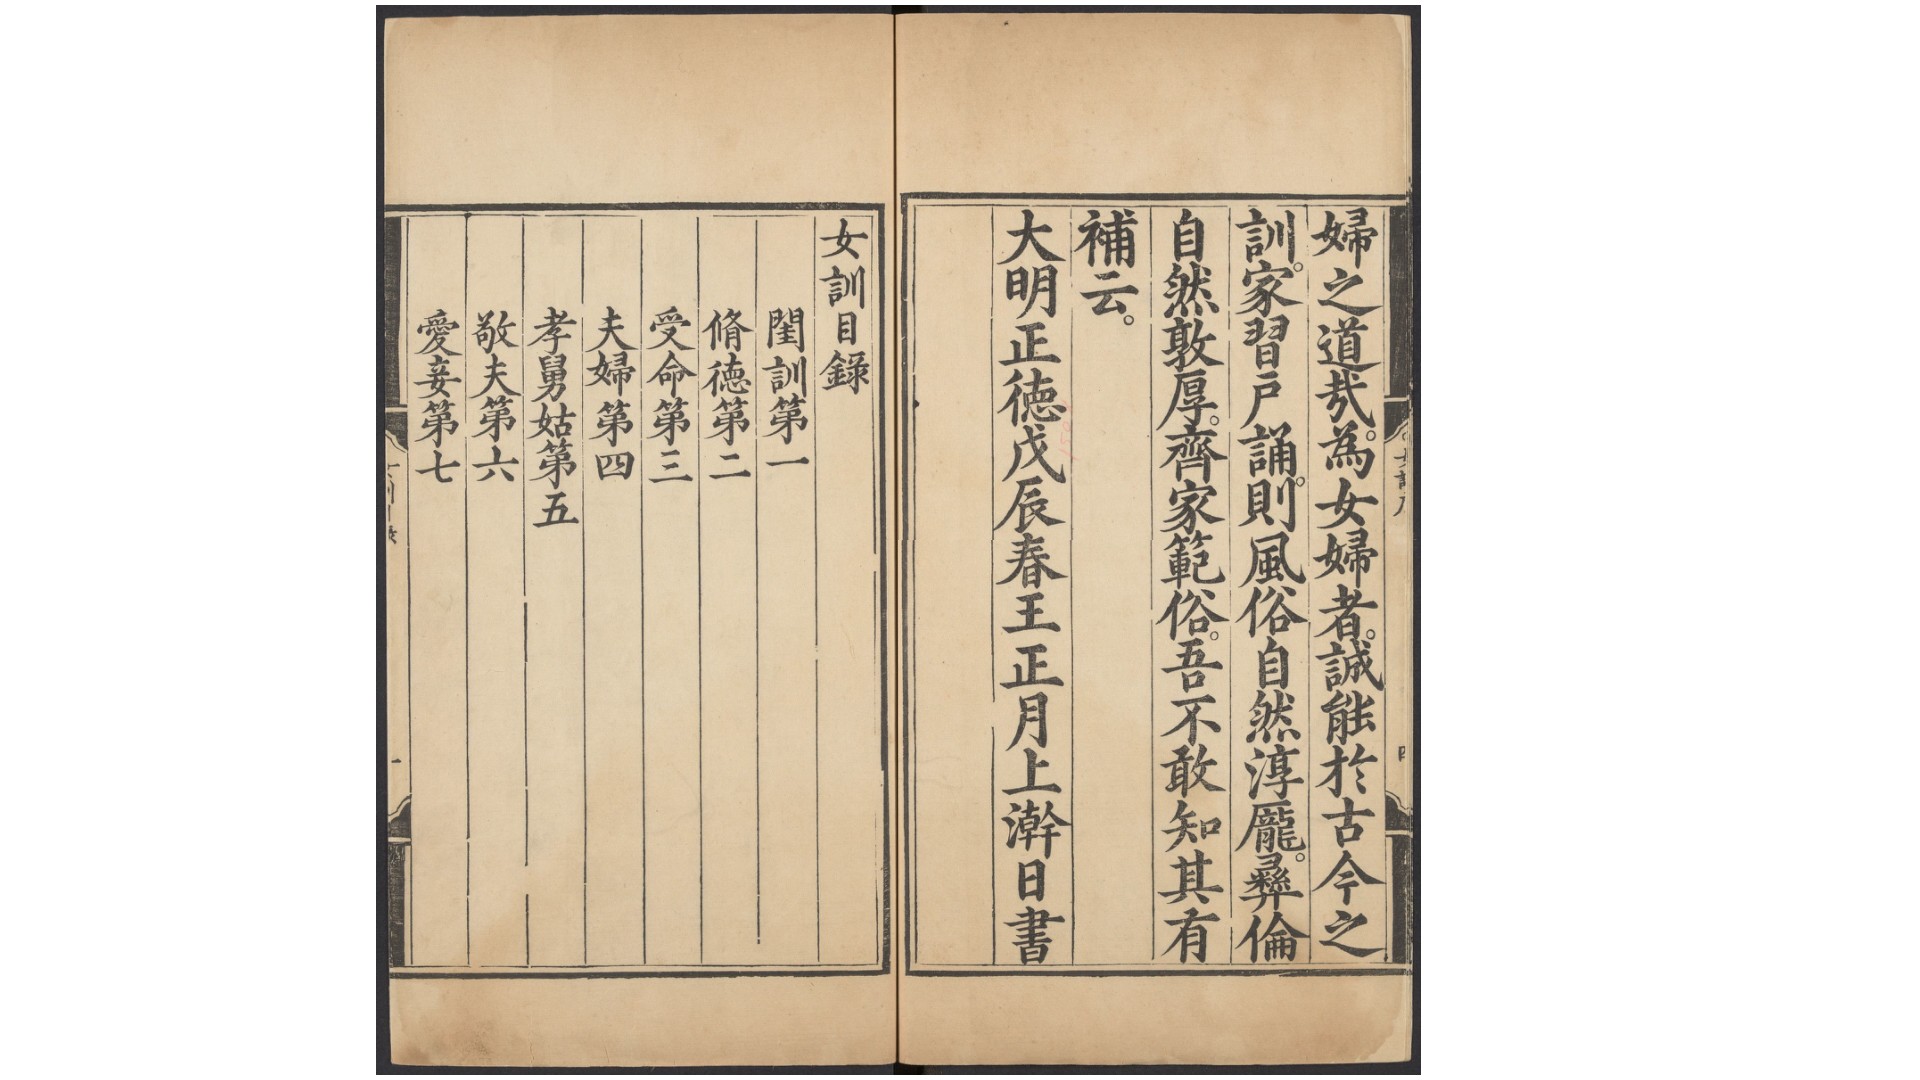 婦之道㢤。為女婦者。誠能於古今之
訓。家習戶誦。則風俗自然淳厖。彛倫
自然敦厚。齊家範俗。吾不敢知其有
補云。
大明正德戊辰春王正月上澣日書
女訓目錄
閨訓第一
脩德第二
受命第三
夫婦第四
孝舅姑第五
敬夫第六
愛妾第七